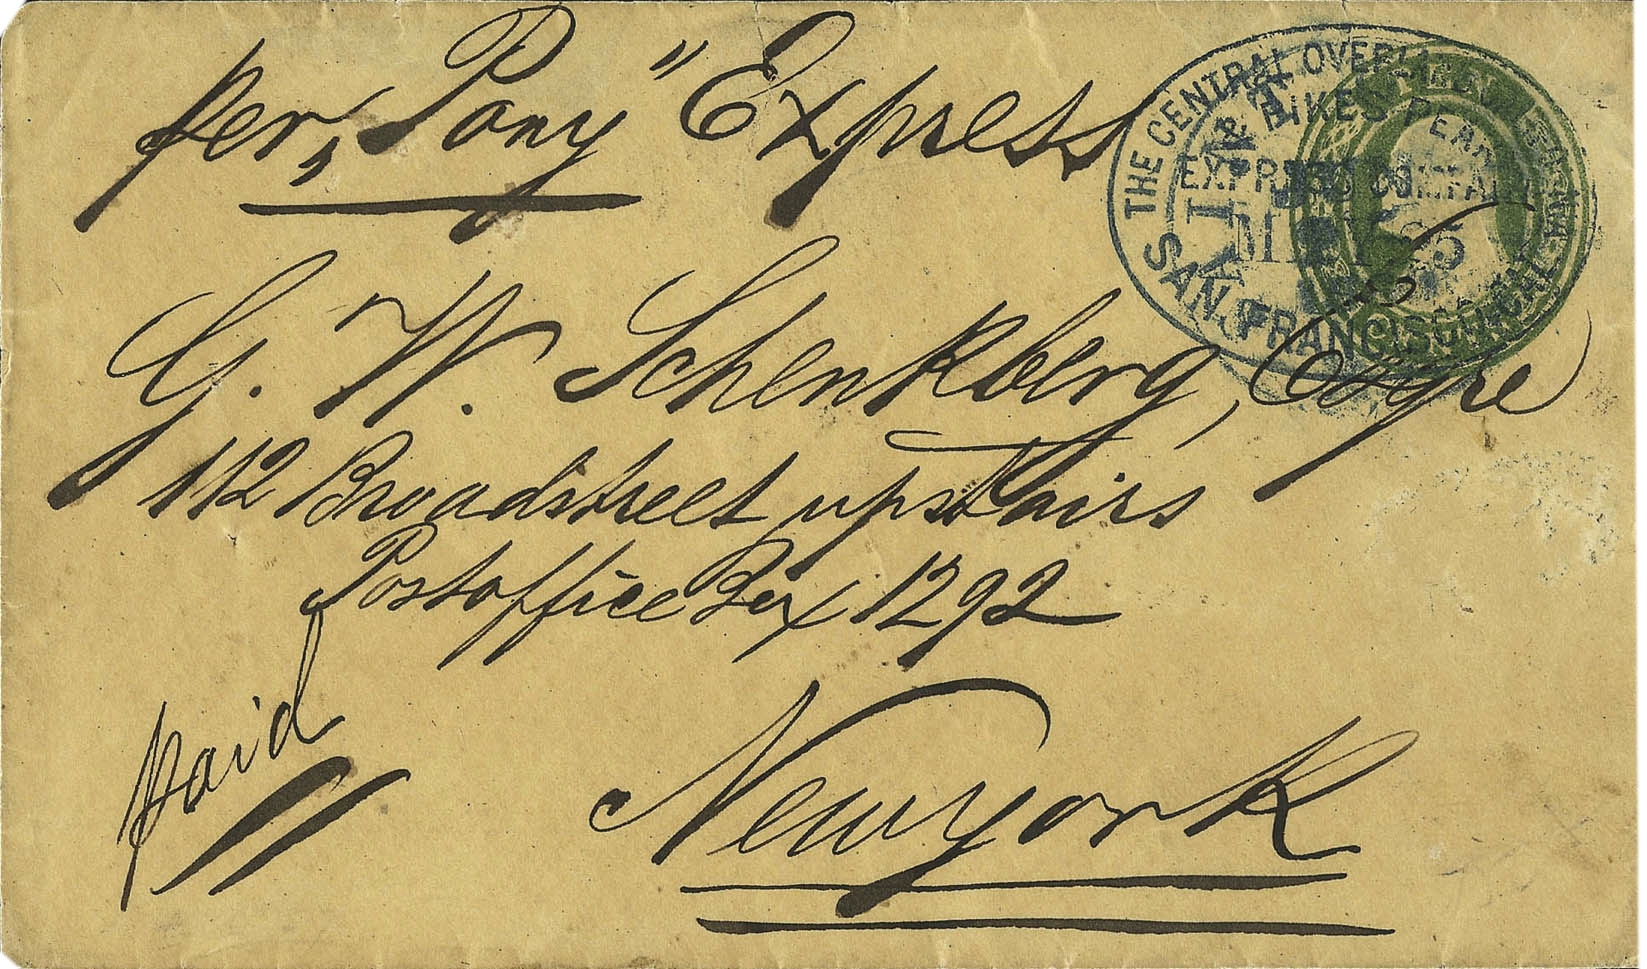 per „Pony" Express
THE CENTRAL OVERL
& PIKES PEAK
EXPRESS COMPANY
SAN FRANCISCO CAL
G. W. Schenkberg,
112 Broadstreet upstairs
Postoffice Box 1292
paid
Newyork